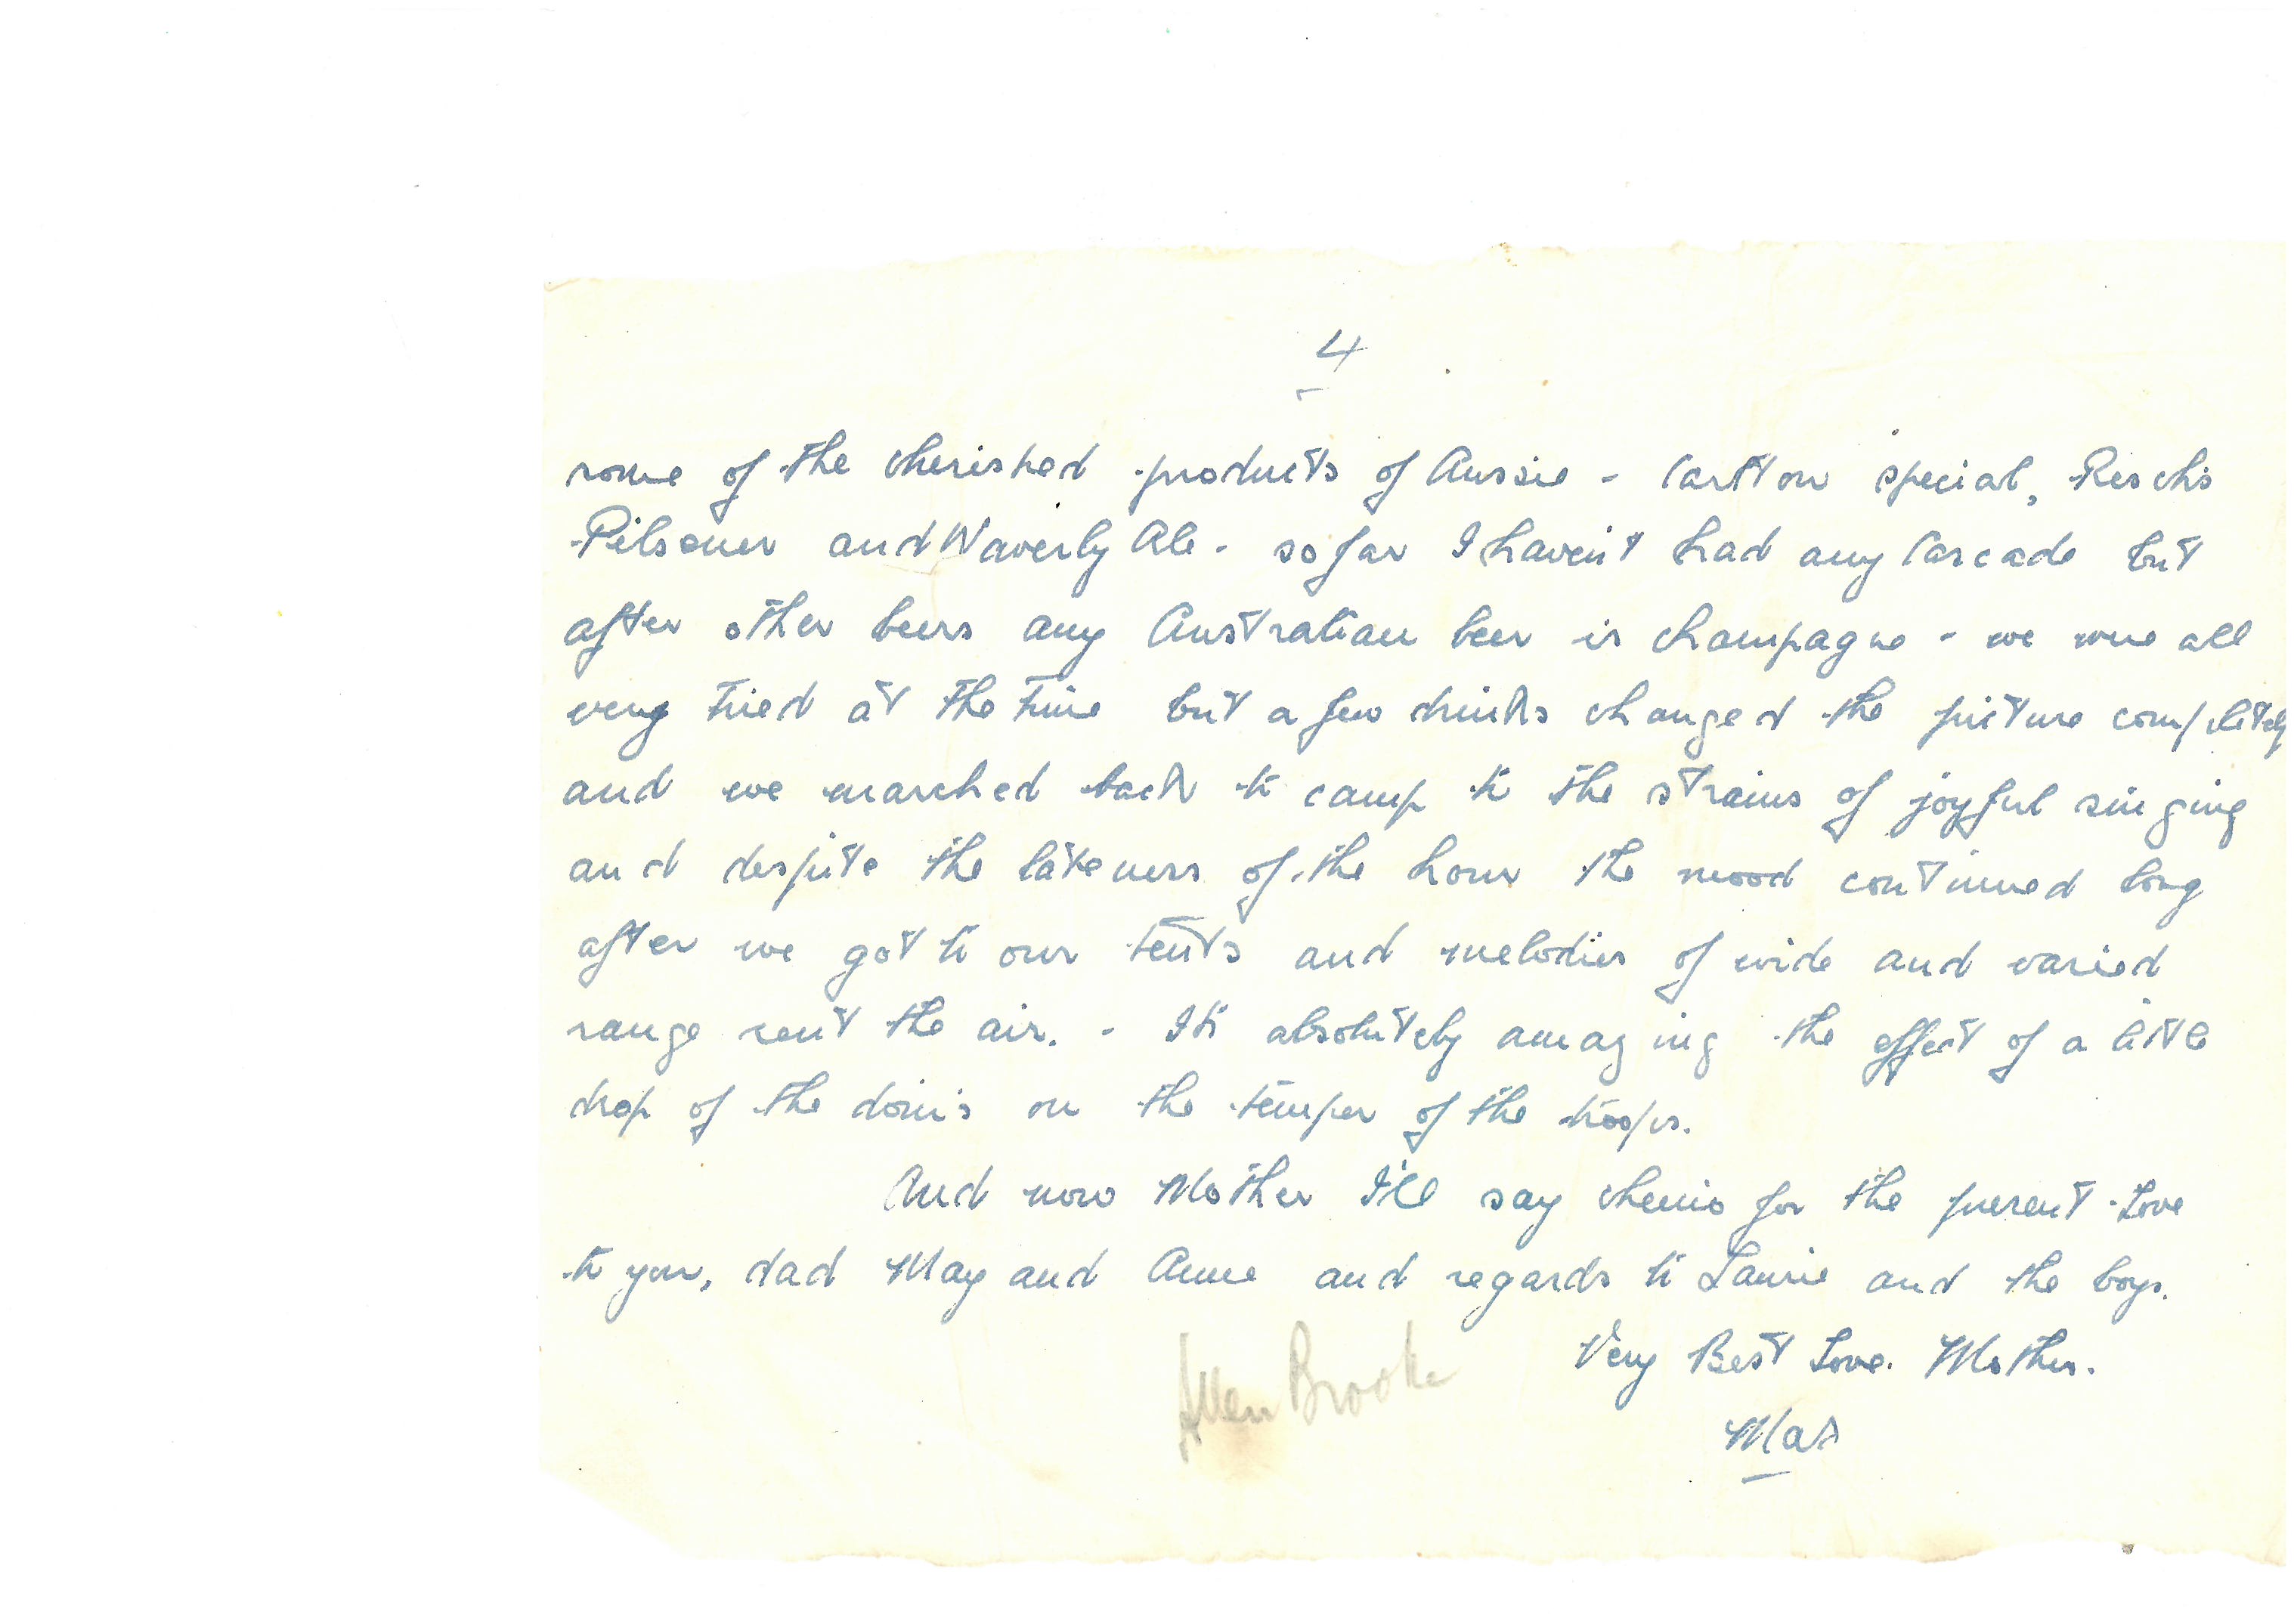 4
some of the cherished products of Aussie - Carlton special, Resch's
Pilsener and Waverly Ale - so far I haven't had any Cascade but
after other beers any Australian beer is champagne - we were all
very tired at the time but a few drinks changed the picture completely
and we marched back to camp to the strains of joyful singing
and despite the lateness of the hour the mood continued long
after we got to our tents and melodies of wide and varied
range rent the air. - It's absolutely amazing the effect of a little
drop of the doin's on the temper of the troops.
And now Mother I'll say cheerio for the present. Love
to you, dad May and Anne and regards to Laurie and the boys.
Very Best Love. Mother.
Allen Brooke